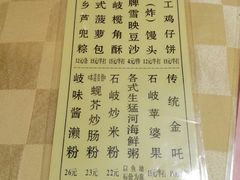 工鸡仔饼
（炸）馒头
牌雪映豆沙
岐榄角酥
式菠萝包
乡芦兜粽
传统金吒
石岐苹婆果
各式生猛河海鲜粥
石岐炒米粉 22元
蚬芥炒肠粉 23元
岐味酱濑粉 26元